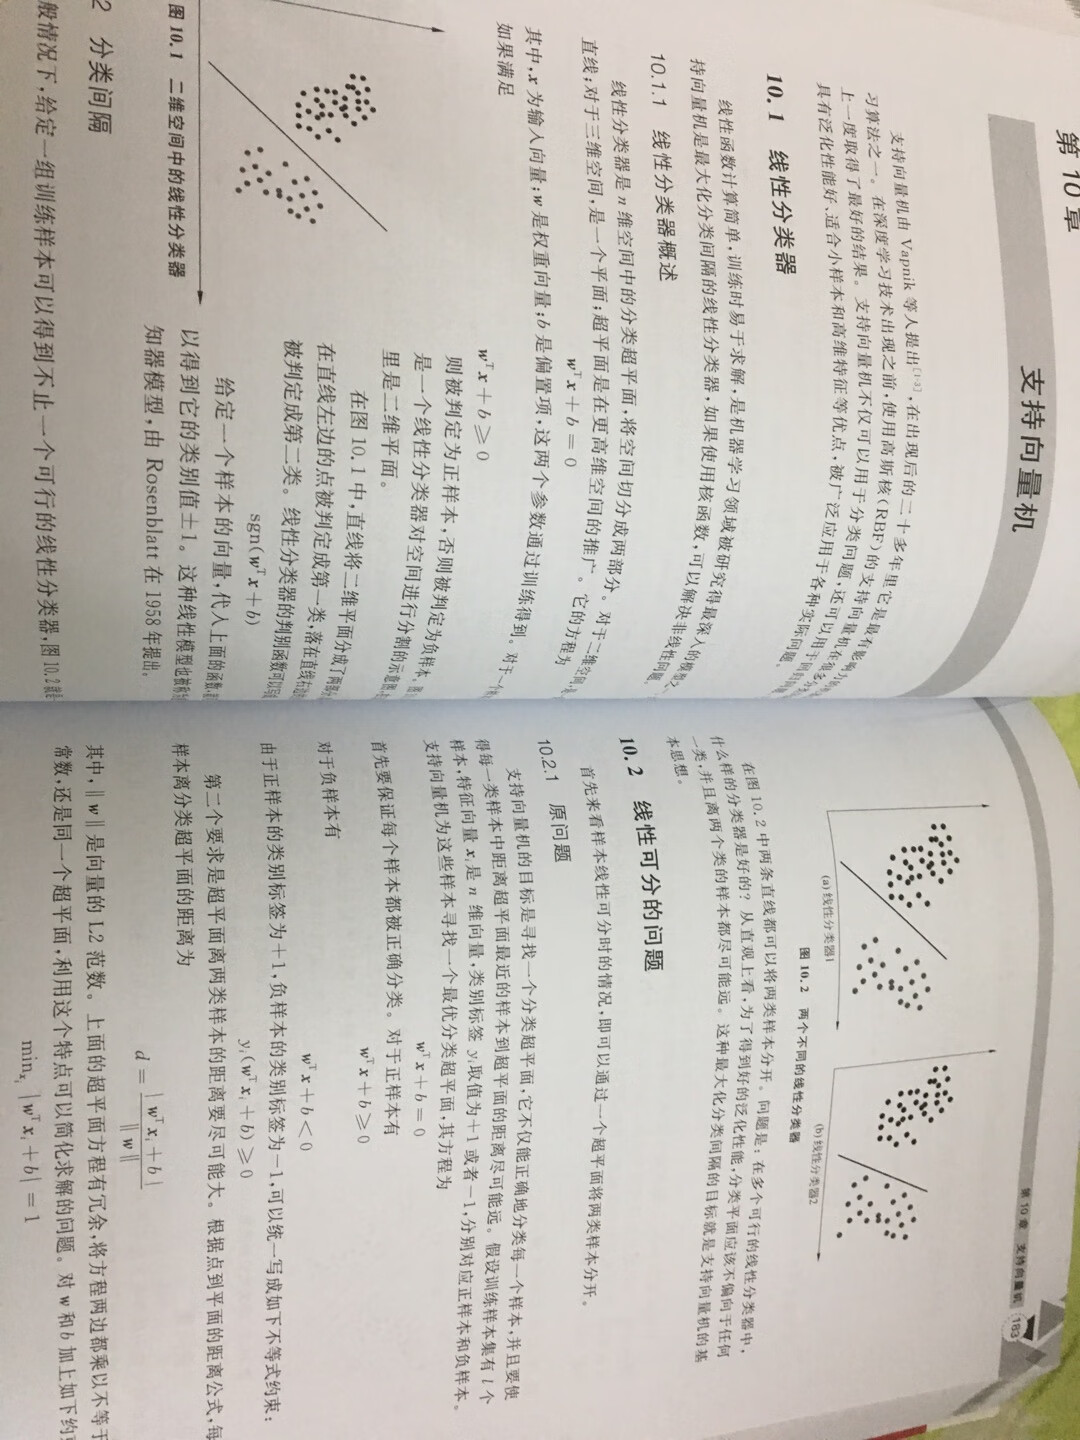 第10章
支持向量机
支持向量机由 Vapnik 等人提出[1-3],在出现后的二十多年里它是最有影响力
习算法之一。在深度学习技术出现之前,使用高斯核(RBF)的支持向量机在
上一度取得了最好的结果。支持向量机不仅可以用于分类问题,还可以用于
具有泛化性能好、适合小样本和高维特征等优点,被广泛应用于各种实际问题。
10.1 线性分类器
线性函数计算简单,训练时易于求解,是机器学习领域被研究得最深入的模型之
持向量机是最大化分类间隔的线性分类器,如果使用核函数,可以解决非线性问题。
10.1.1 线性分类器概述
线性分类器是 n 维空间中的分类超平面,将空间切分成两部分。对于二维空间,
直线;对于三维空间,是一个平面;超平面是在更高维空间的推广。它的方程为
wᵀx + b = 0
其中,x 为输入向量;w 是权重向量;b 是偏置项,这两个参数通过训练得到。对于一个
如果满足
wᵀx + b ≥ 0
则被判定为正样本,否则被判定为负样本。
是一个线性分类器对空间进行分割的示意图,
里是二维平面。
在图 10.1 中,直线将二维平面分成了两部分
在直线左边的点被判定成第一类,落在直线右边
被判定成第二类。线性分类器的判别函数可以写
sgn(wᵀx + b)
给定一个样本的向量,代入上面的函数,
以得到它的类别值±1。这种线性模型也被称
知器模型,由 Rosenblatt 在 1958 年提出。
图 10.1 二维空间中的线性分类器
2 分类间隔
般情况下,给定一组训练样本可以得到不止一个可行的线性分类器,图 10.2
第10章 支持向量机 183
(a) 线性分类器1
(b) 线性分类器2
图 10.2 两个不同的线性分类器
在图 10.2 中两条直线都可以将两类样本分开。问题是:在多个可行的线性分类器中,
什么样的分类器是好的?从直观上看,为了得到好的泛化性能,分类平面应该不偏向于任何
一类,并且离两个类的样本都尽可能远。这种最大化分类间隔的目标就是支持向量机的基
本思想。
10.2 线性可分的问题
首先来看样本线性可分时的情况,即可以通过一个超平面将两类样本分开。
10.2.1 原问题
支持向量机的目标是寻找一个分类超平面,它不仅能正确地分类每一个样本,并且要使
得每一类样本中距离超平面最近的样本到超平面的距离尽可能远。假设训练样本集有 l 个
样本,特征向量 xᵢ 是 n 维向量,类别标签 yᵢ 取值为+1 或者−1,分别对应正样本和负样本。
支持向量机为这些样本寻找一个最优分类超平面,其方程为
wᵀx + b = 0
首先要保证每个样本都被正确分类。对于正样本有
wᵀx + b ≥ 0
对于负样本有
wᵀx + b < 0
由于正样本的类别标签为+1,负样本的类别标签为−1,可以统一写成如下不等式约束:
yᵢ(wᵀxᵢ + b) ≥ 0
第二个要求是超平面离两类样本的距离要尽可能大。根据点到平面的距离公式,每
样本离分类超平面的距离为
d = |wᵀxᵢ + b| / ‖w‖
其中,‖w‖是向量的 L2 范数。上面的超平面方程有冗余,将方程两边都乘以不等于
常数,还是同一个超平面,利用这个特点可以简化求解的问题。对 w 和 b 加上如下约
minₓᵢ |wᵀxᵢ + b| = 1